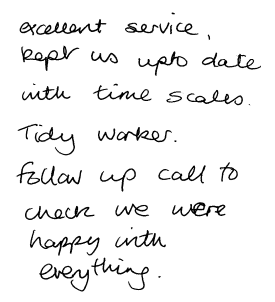 excellent service,
kept us upto date
with time scales.
Tidy worker.
follow up call to
check we were
happy with
everything.